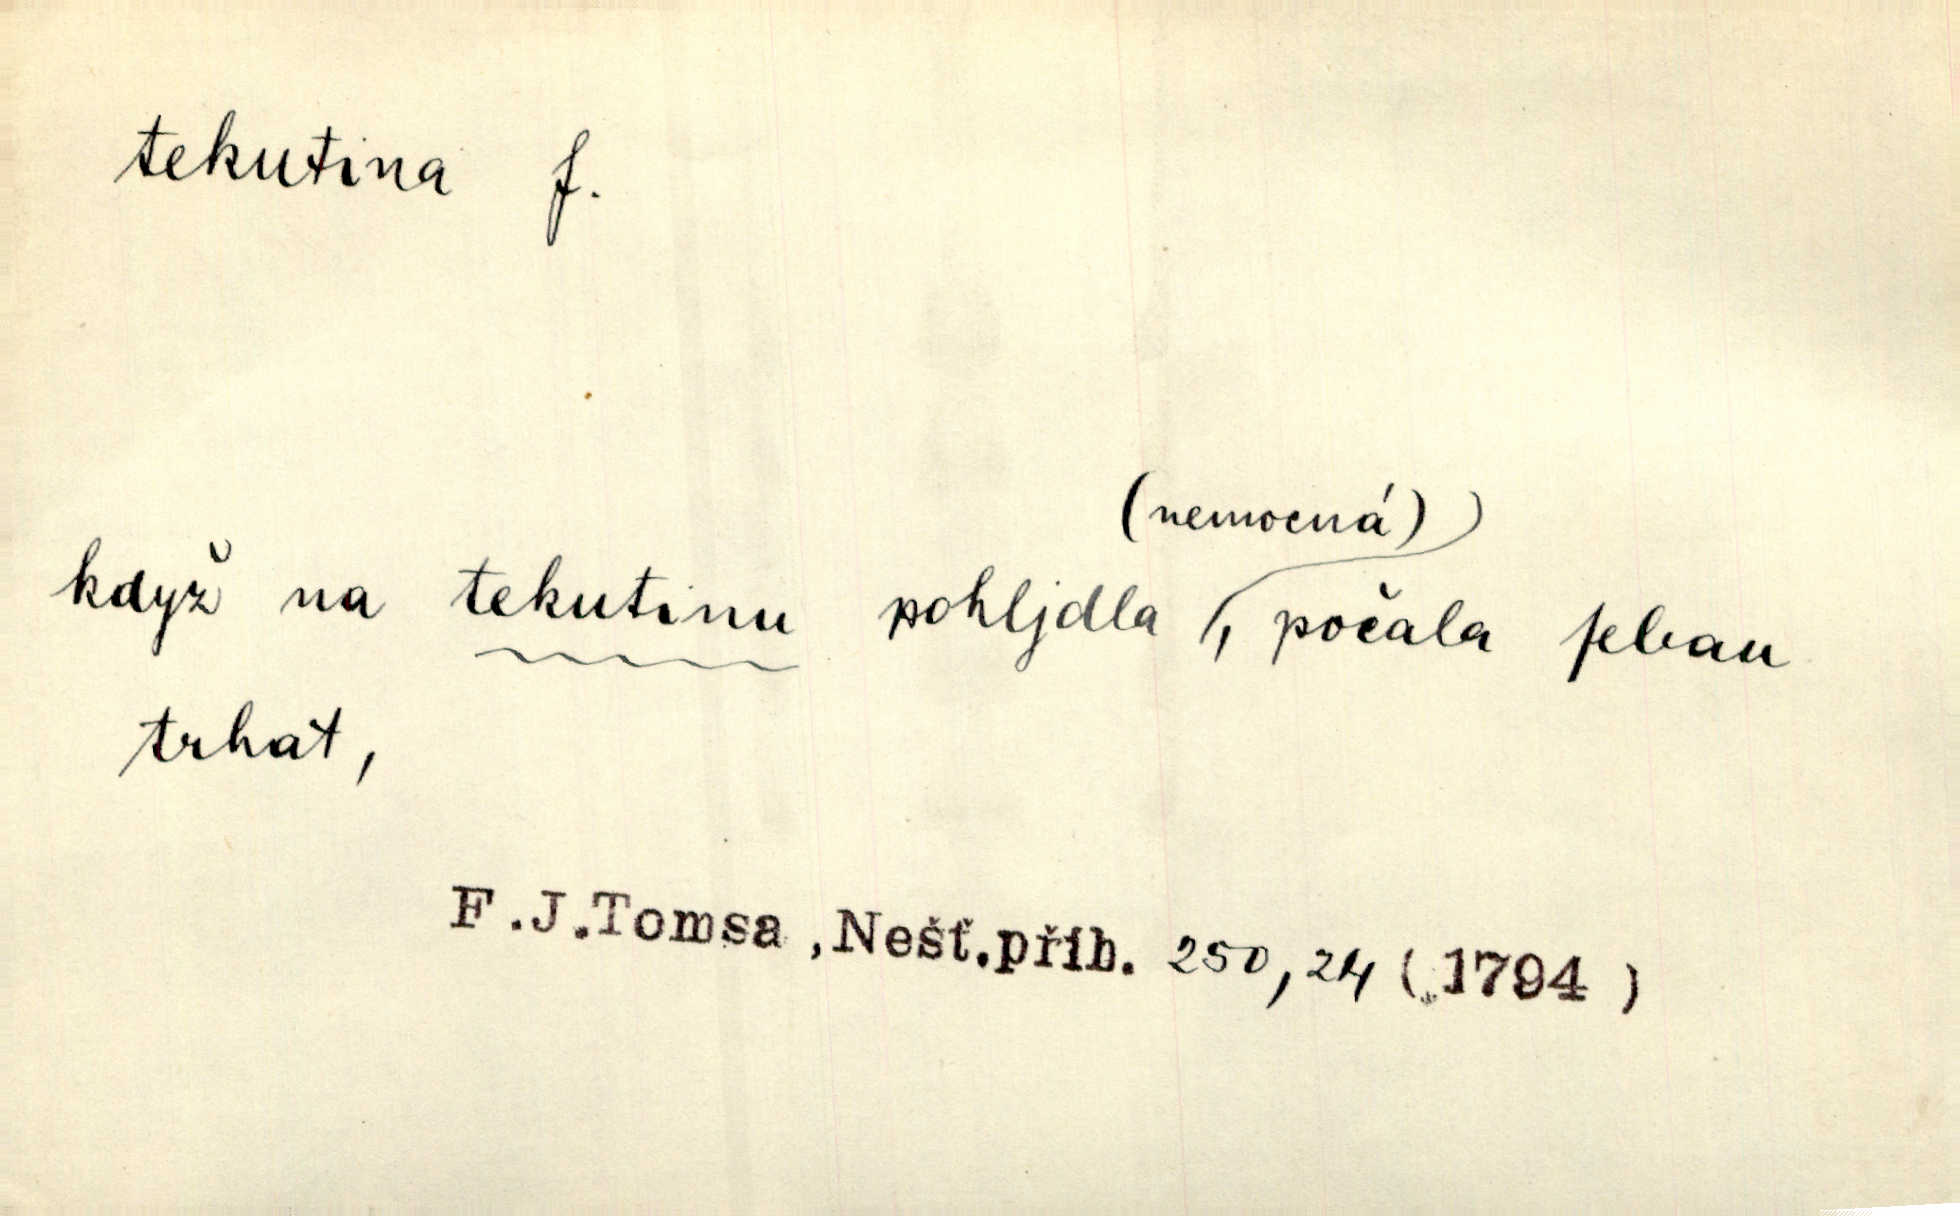 tekutina f.
(nemocná)
když na tekutinu pohljdla, počala ſebau
trhat,
F.J.Tomsa, Nešť.příb. 250,24 (1794)